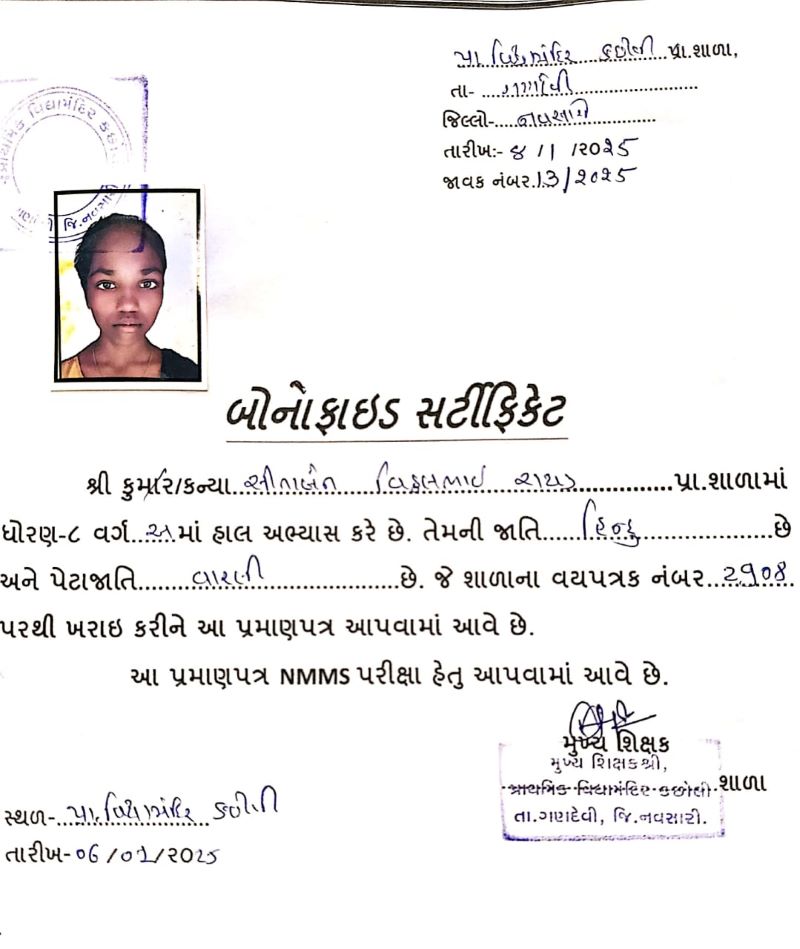 પ્રા. વિદ્યામંદિર કછોલી પ્રા.શાળા,
તા- ગણદેવી
જિલ્લો- નવસારી
તારીખ:- ૪/૧/૨૦૨૫
જાવક નંબર.13/૨૦૨૫
પ્રાથમિક વિદ્યામંદિર કછોલી
જિ.નવસારી
બોનોફાઇડ સર્ટીફિકેટ
શ્રી કુમાર/કન્યા વિઠ્ઠલભાઈ રાઠોડ પ્રા.શાળામાં
ધોરણ-૮ વર્ગ અ માં હાલ અભ્યાસ કરે છે. તેમની જાતિ હિન્દુ છે
અને પેટાજાતિ છે. જે શાળાના વયપત્રક નંબર
પરથી ખરાઇ કરીને આ પ્રમાણપત્ર આપવામાં આવે છે.
આ પ્રમાણપત્ર NMMS પરીક્ષા હેતુ આપવામાં આવે છે.
મુખ્ય શિક્ષક
મુખ્ય શિક્ષકશ્રી,
પ્રાથમિક વિદ્યામંદિર કછોલી શાળા
તા.ગણદેવી, જિ.નવસારી.
સ્થળ- પ્રા. વિદ્યામંદિર કછોલી
તારીખ-૦૬/૦૧/૨૦૨૫